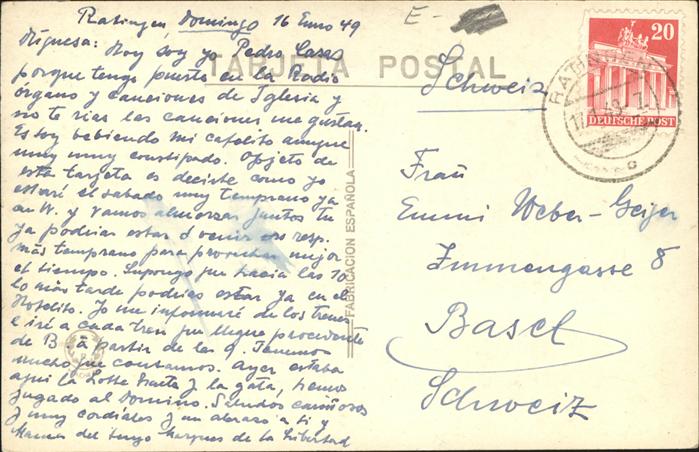 Ratingen Domingo 16 Enero 49
E-
Miquesa: Hoy soy yo Pedro Casas
porque tengo puesta en la Radio
órgano y canciones de Iglesia y
no te rias las canciones me gustan.
Estoy bebiendo mi cafelito aunque
muy muy constipado. Objeto de
esta tarjeta es decirte como yo
estaré el sabado muy temprano ya
en W. y vamos almorzar juntos tu
ya podrias estar o venir eso resp.
más temprano para provechar mejor
el tiempo. Supongo que hacia las 10
lo más tarde podrias estar ya en el
Hotelito. Yo me informaré de los trenes
e iré a cada tren que llegue procedente
de B a partir de las 9. Tenemos
mucho que contarnos. Ayer estaba
aqui la Lotte y la gata, hemos
jugado al Domino. Saludos cariñosos
y muy cordiales y un abrazo a ti y
Mama del Marques de la Libertad
TARJETA POSTAL
FABRICACION ESPAÑOLA
Schweiz
20
DEUTSCHE POST
RATINGEN
Frau
Emmi Weber-Geiger
Immengasse 8
Basel
Schweiz